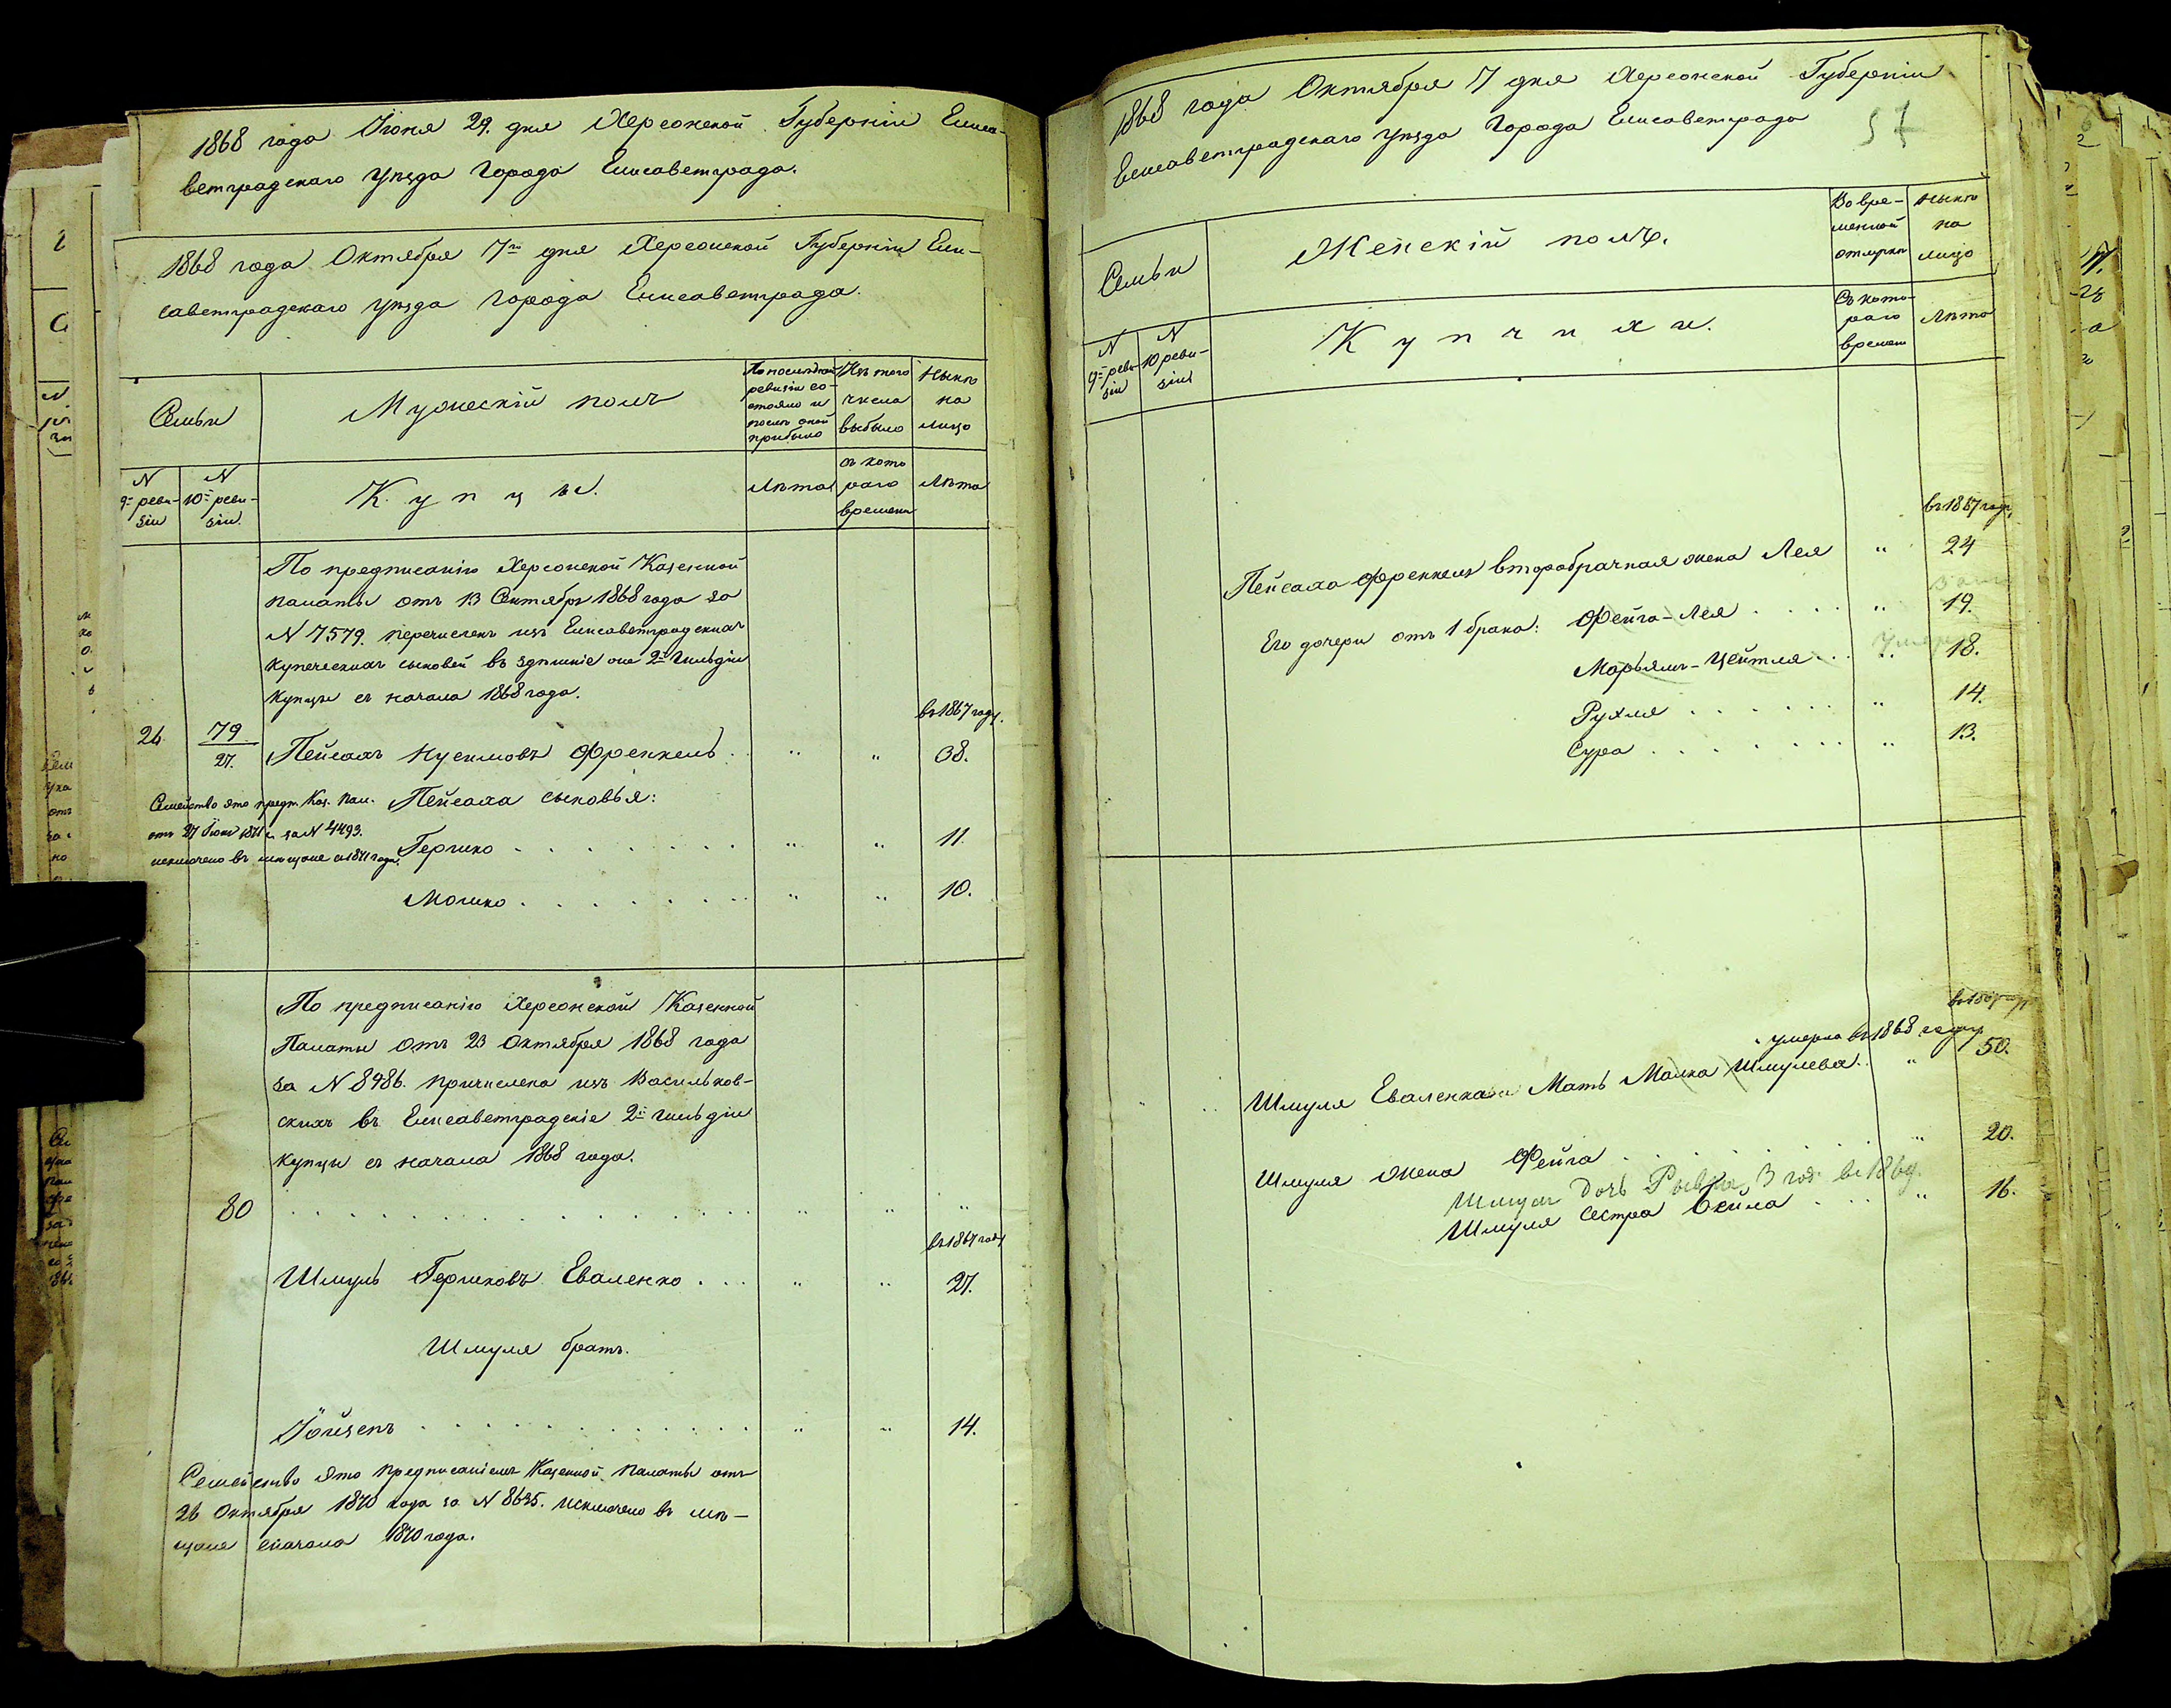 1868 года Іюня 29. дня Херсонской Губерніи Елиса-
ветградскаго уѣзда города Елисаветграда.
1868 года Октября 7го дня Херсонской Губерніи Ели-
саветградскаго уѣзда города Елисаветграда.
Семьи
Мужескій полъ
По последней
ревизіи со-
стояло и
после оной
прибыло
Изъ того
числа
выбыло
Нынѣ
на
лицо
N
9й реви-
зіи
N
10й реви-
зіи.
Купцы.
Лѣта
съ кото
раго
времени
Лѣта
По предписанію Херсонской Казенной
палаты отъ 13 Сентября 1868 года за
N 7579. перечисленъ изъ Елисаветградскихъ
купеческихъ сыновей въ здѣшніе же 2й гильдіи
купцы съ начала 1868 года.
въ 1867 году.
26. 79 Пейсахъ Нусимовъ Френкель . " " 38.
27.
Семейство это предп. Каз. Пал.
отъ 27 Іюня 1871 г. за N 4493.
исключено въ мещане съ 1871 года.
Пейсаха сыновья:
Гершко . . . . . . . " " 11.
Мошко . . . . . . . " " 10.
По предписанію Херсонской Казенной
Палаты отъ 23 Октября 1868 года
за N 8986. причислена изъ Васильков-
скихъ въ Елисаветградскіе 2й гильдіи
купцы съ начала 1868 года.
80 . . . . . . . . . . . . " " "
въ 1867 году
Шмуль Гершковъ Еваленко . . . " " 27.
Шмуля братъ.
Іойзепъ . . . . . . . . . . " " 14.
Семейство это предписаніемъ Казенной палаты отъ
26 Октября 1870 года за N 8635. исключено въ мѣ-
щане сначала 1870 года.
1868 года Октября 7 дня Херсонской Губерніи
Елисаветградскаго уѣзда города Елисаветграда
57
Семьи
Женскій полъ.
Во вре-
менной
отлучки
Нынѣ
на
лицо
N
9й реви-
зіи
N
10 реви-
зіи
Купчихи.
Съ кото-
раго
времени
Лѣта
въ 1867 году,
Пейсаха Френкель второбрачная жена Лея " 24
Его дочери отъ 1 брака: Фейга-Лея . . . . " 19.
Марьямъ-Цейтля . . . " 18.
Рухля . . . . . . " 14.
Сура . . . . . . . " 13.
умерла въ 1868 году
Шмуля Еваленка Мать Малка Шмулева. . " 50.
Шмуля жена Фейга . . . . . . " 20.
Шмуля дочь Рывка, 3 год. въ 1869.
Шмуля сестра Бейла . . . " 16.